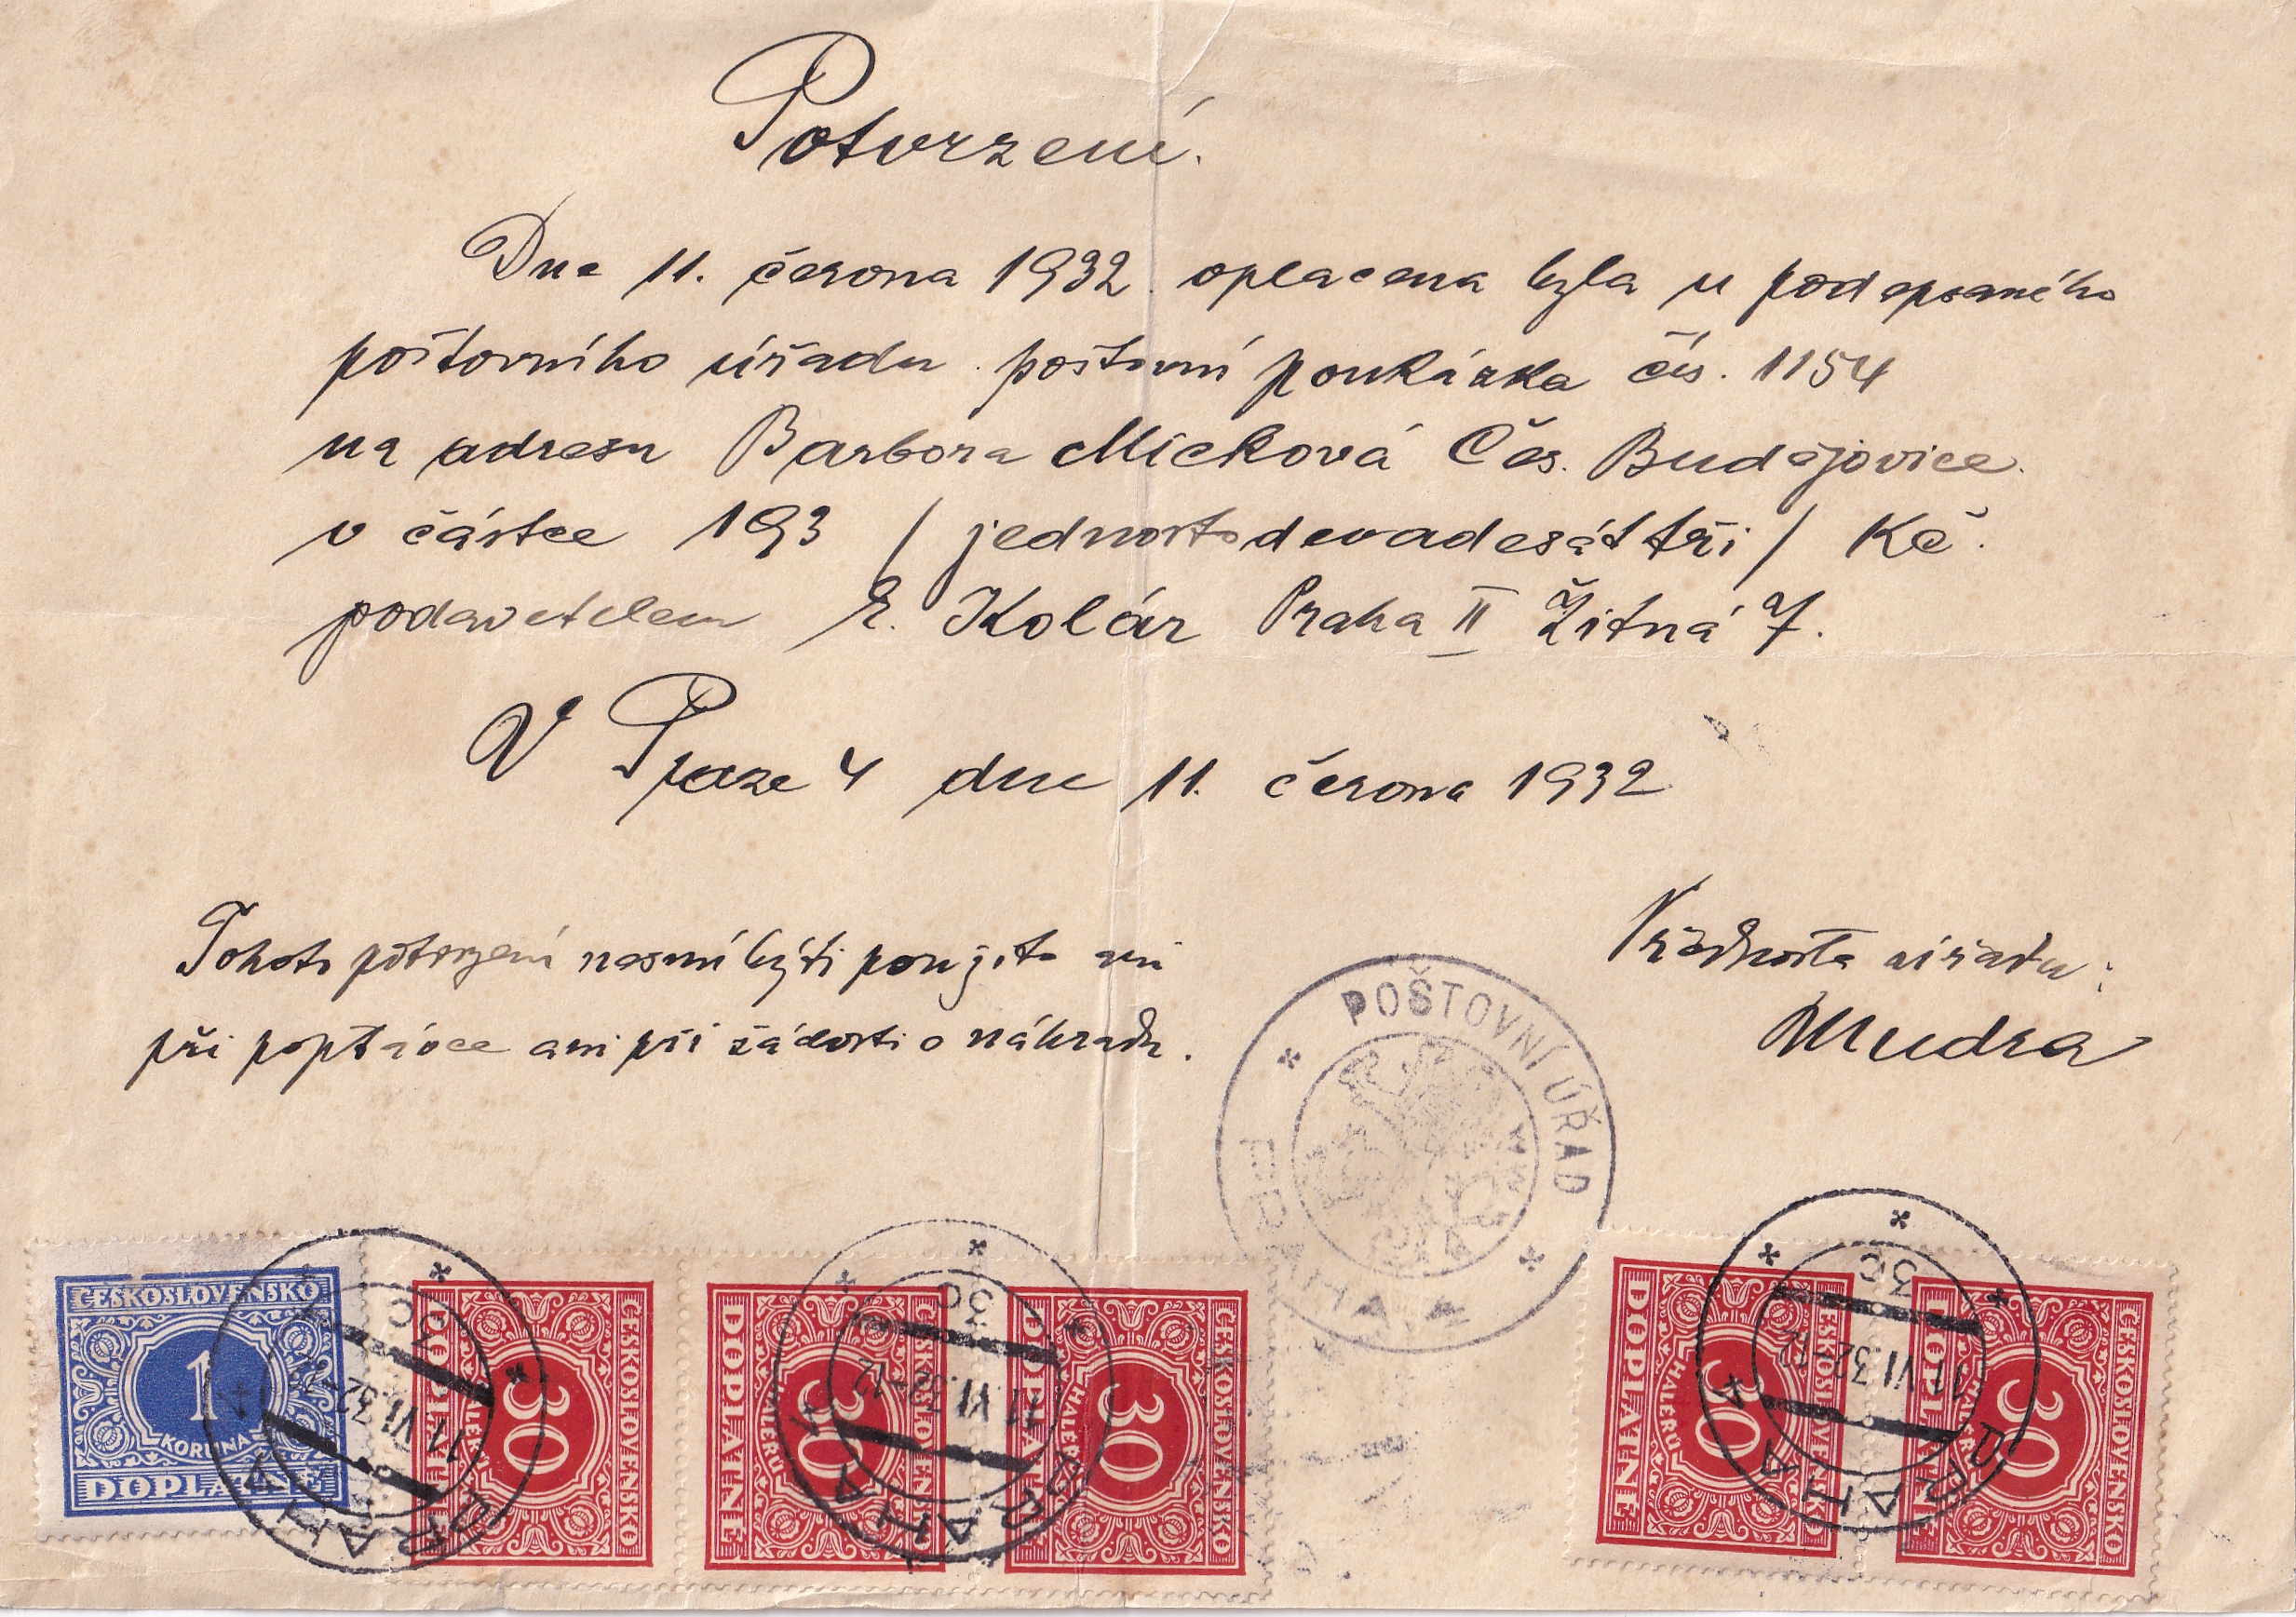 Potvrzení.
Dne 11. června 1932 oplacena byla u podepsaného
poštovního úřadu poštovní poukázka čís. 1154
na adresu Barbora Micková Čes. Budějovice
v částce 193 / jednostodevadesáttři / Kč.
podavatelem E. Kolár Praha II Žitná 7.
V Praze 4 dne 11. června 1932
Tohoto potvrzení nesmí býti použito ani
při poptávce ani při žádosti o náhradu.
Přednosta úřadu:
Mudra
POŠTOVNÍ ÚŘAD
PRAHA
ČESKOSLOVENSKO
1
KORUNA
DOPLATNÉ
ČESKOSLOVENSKO
30
HALÉŘŮ
DOPLATNÉ
ČESKOSLOVENSKO
30
HALÉŘŮ
DOPLATNÉ
ČESKOSLOVENSKO
30
HALÉŘŮ
DOPLATNÉ
ČESKOSLOVENSKO
30
HALÉŘŮ
DOPLATNÉ
ČESKOSLOVENSKO
30
HALÉŘŮ
DOPLATNÉ
PRAHA 4
11.VI.32
3c
PRAHA 4
11.VI.32-12
3c
PRAHA 4
11.VI.32-12
3c